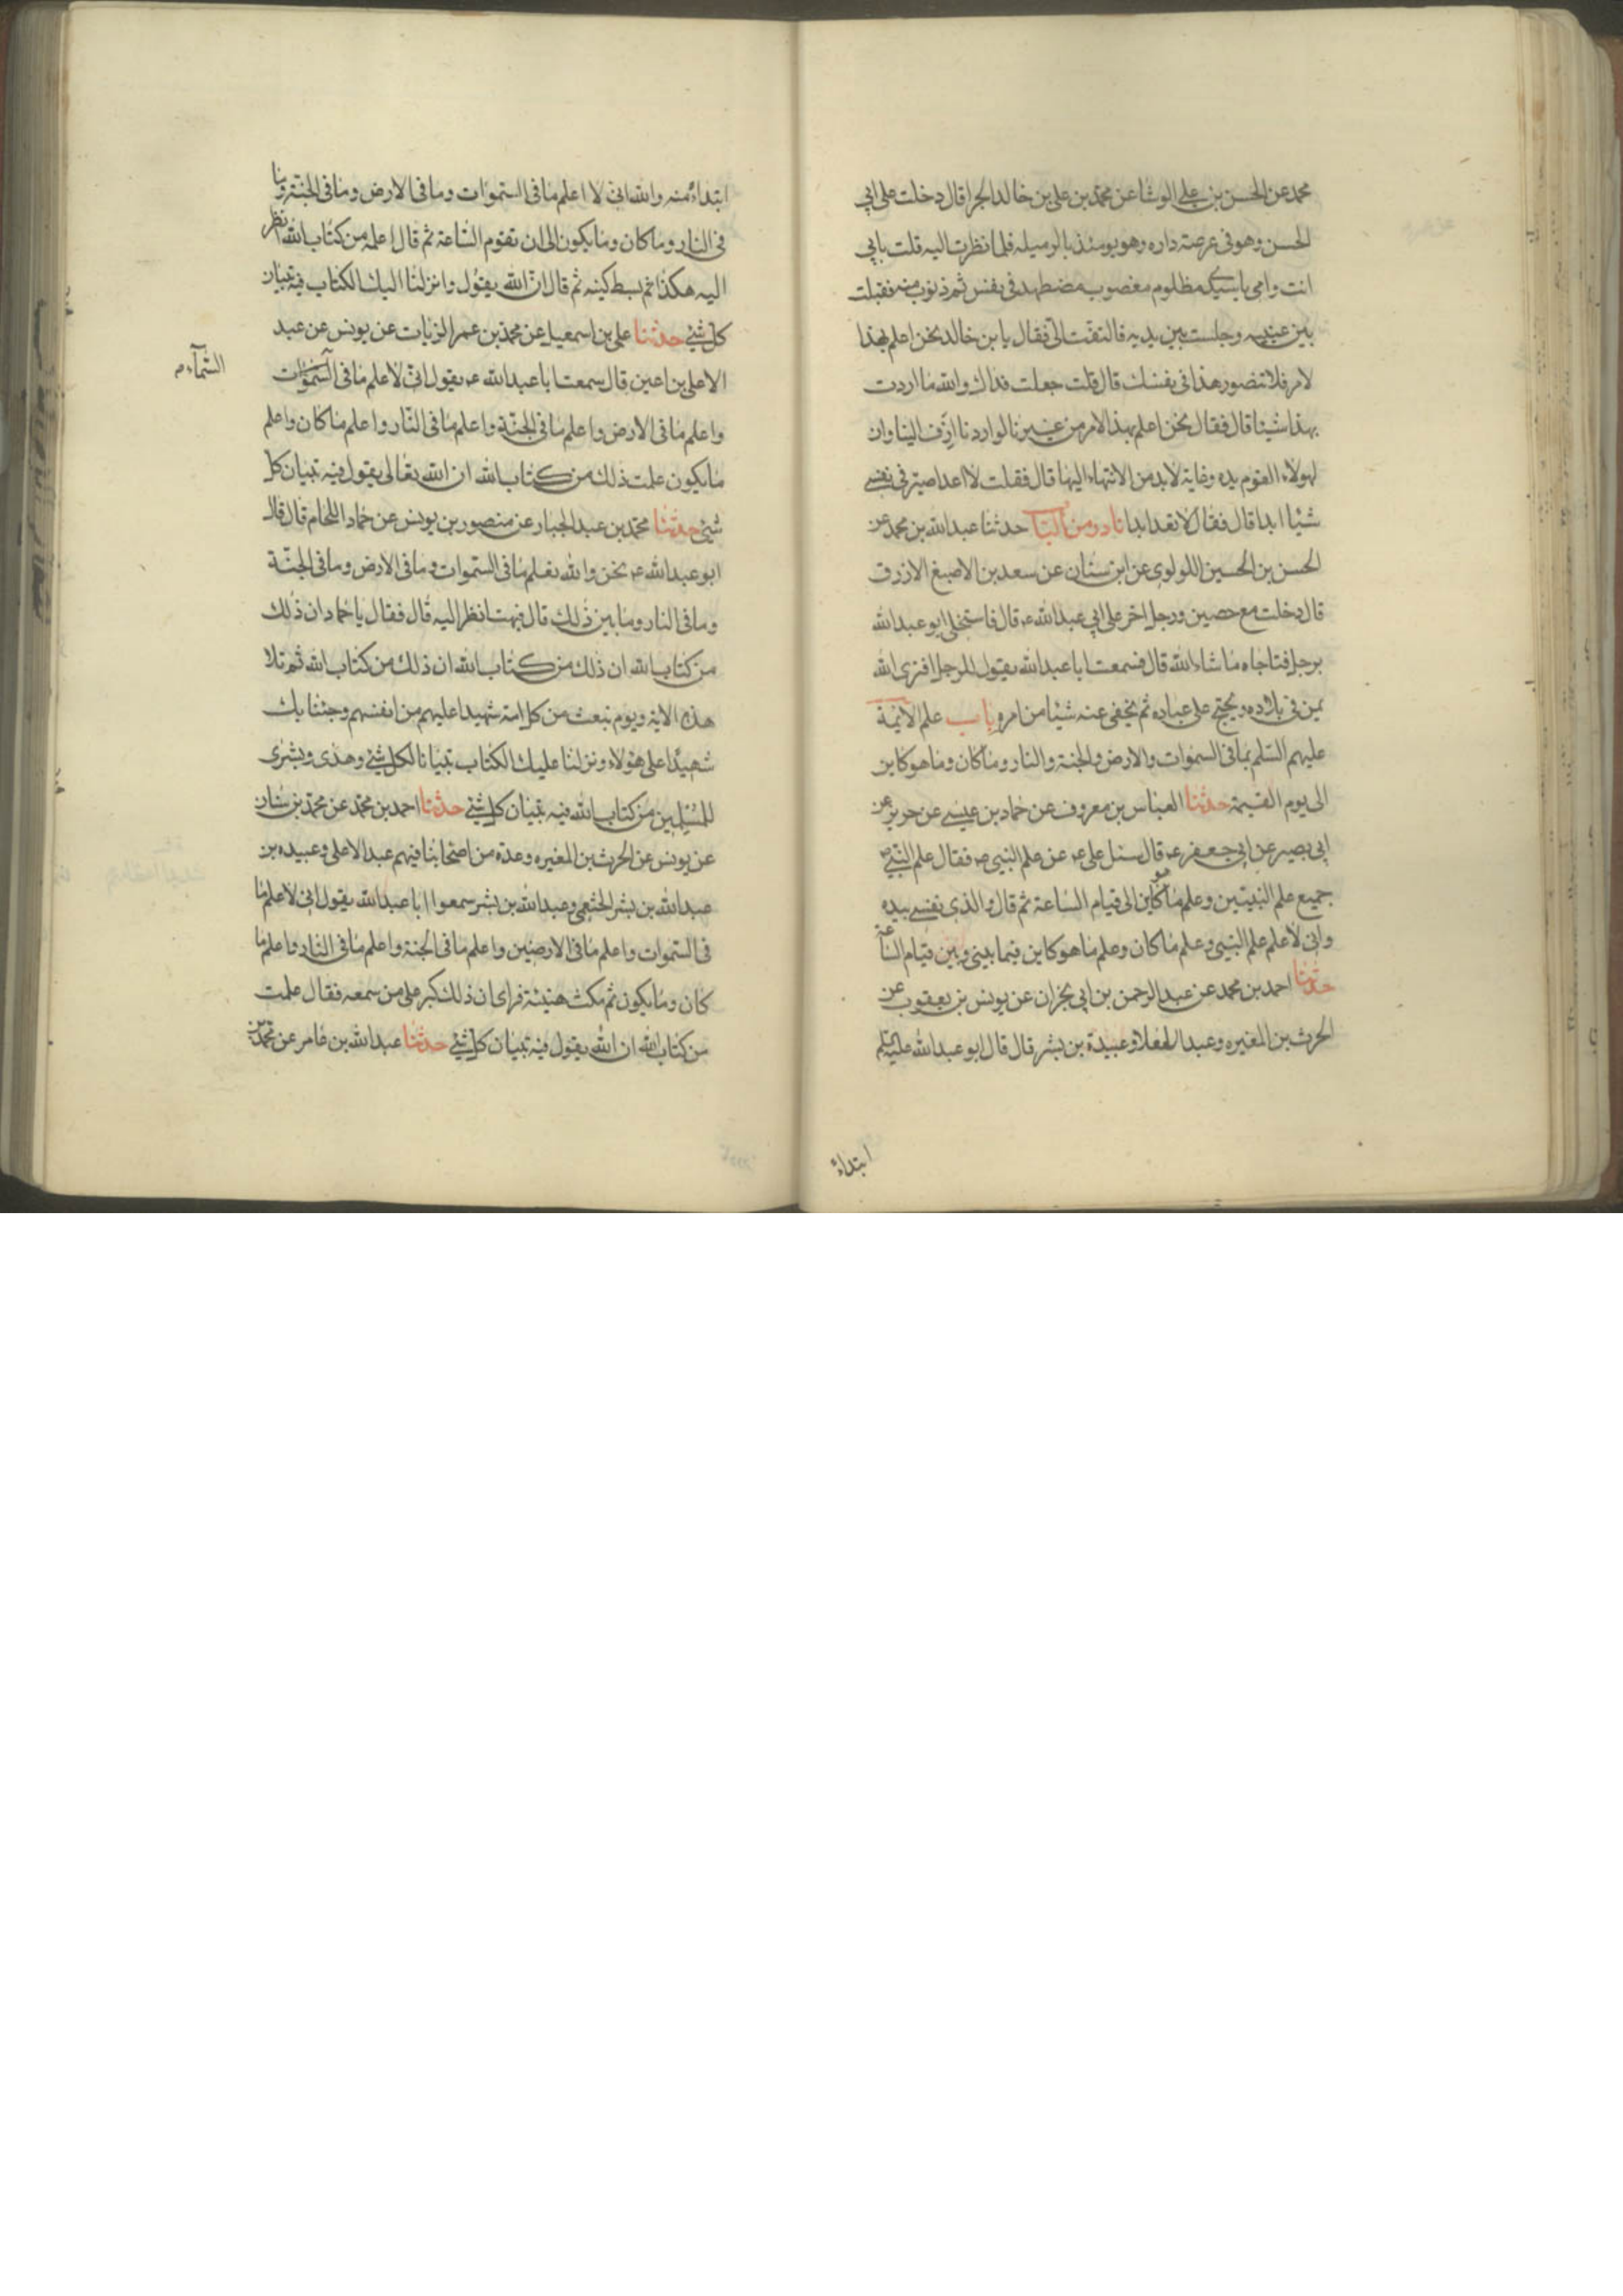 محمد عن الحسن بن علي الوشا عن محمد بن علي بن خالد الجرا قال دخلت على ابي
الحسن وهو في عرصة داره وهو يومئذ بالرميله فلما نظرت اليه قلت بابي
انت وامي يا سيدي مظلوم مغصوب مضطهد في نفسي ثم دنوت منه فقبلت
بين عينيه وجلست بين يديه فالتفت الي فقال يا بن خالد نحن اعلم بهذا
لامر فلا تتصور هذا في نفسك قال قلت جعلت فداك والله ما اردت
بهذا شيئا قال فقال نحن اعلم بهذا الامر من غيرنا لو اردنا ازف الينا وان
لهولاء القوم مده وغاية لابد من الانتهاء اليها قال فقلت لا اعد اصير في نفسي
شيئا ابدا قال فقال لا تعد ابدا نادر من الباب حدثنا عبد الله بن محمد عن
الحسن بن الحسين اللولوي عن ابن سنان عن سعد بن الاصبغ الازرق
قال دخلت مع حصين ورجل اخر على ابي عبد الله ع قال فاستخلى ابو عبد الله
برجل فناجاه ما شاء الله قال فسمعت ابا عبد الله يقول للرجل افترى الله
يمن في بلاده ويحتج على عباده ثم يخفى عنه شيئا من امره باب علم الائمة
عليهم السلم بما في السموات والارض والجنة والنار وما كان وما هو كاين
الى يوم القيمة حدثنا العباس بن معروف عن حماد بن عيسى عن حريز عن
ابي بصير عن ابي جعفر ع قال سئل علي ع عن علم النبي ص فقال علم النبي ص
جميع علم النبيين وعلم ما هو كاين الى قيام الساعة ثم قال والذي نفسي بيده
واني لاعلم علم النبي وعلم ما كان وعلم ما هو كاين فيما بيني وبين قيام الساعة
حدثنا احمد بن محمد عن عبد الرحمن بن ابي نجران عن يونس بن يعقوب عن
الحرث بن المغيره وعبد الاعلا وعبيدة بن بشر قال قال ابو عبد الله عليه السلم
ابتداء
ابتداء منه والله اني لا اعلم ما في السموات وما في الارض وما في الجنة وما
في النار وما كان وما يكون الى ان تقوم الساعة ثم قال اعلمه من كتاب الله انظر
اليه هكذا ثم بسط كفيه ثم قال ان الله يقول وانزلنا اليك الكتاب فيه تبيان
كل شئ حدثنا علي بن اسمعيل عن محمد بن عمر الزيات عن يونس عن عبد
الاعلى بن اعين قال سمعت ابا عبد الله ع يقول اني لاعلم ما في السموات
السماء م
واعلم ما في الارض واعلم ما في الجنة واعلم ما في النار واعلم ما كان واعلم
ما يكون علمت ذلك من كتاب الله ان الله تعالى يقول فيه تبيان كل
شئ حدثنا محمد بن عبد الجبار عن منصور بن يونس عن حماد اللحام قال قال
ابو عبد الله ع نحن والله نعلم ما في السموات وما في الارض وما في الجنة
وما في النار وما بين ذلك قال فبهت انظر اليه قال فقال يا حماد ان ذلك
من كتاب الله ان ذلك من كتاب الله ان ذلك من كتاب الله ثم تلا
هذه الاية ويوم نبعث من كل امة شهيدا عليهم من انفسهم وجئنا بك
شهيدا على هؤلاء ونزلنا عليك الكتاب تبيانا لكل شئ وهدى وبشرى
للمسلمين من كتاب الله فيه تبيان كل شئ حدثنا احمد بن محمد عن محمد بن سنان
عن يونس عن الحرث بن المغيره وعدة من اصحابنا فيهم عبد الاعلى وعبيده بن
عبد الله بن بشر الخثعمي وعبد الله بن بشر سمعوا ابا عبد الله يقول اني لاعلم ما
في السموات واعلم ما في الارضين واعلم ما في الجنة واعلم ما في النار واعلم ما
كان وما يكون ثم مكث هنيئة فراى ان ذلك كبر على من سمعه فقال علمت
من كتاب الله ان الله يقول فيه تبيان كل شئ حدثنا عبد الله بن عامر عن محمد بن